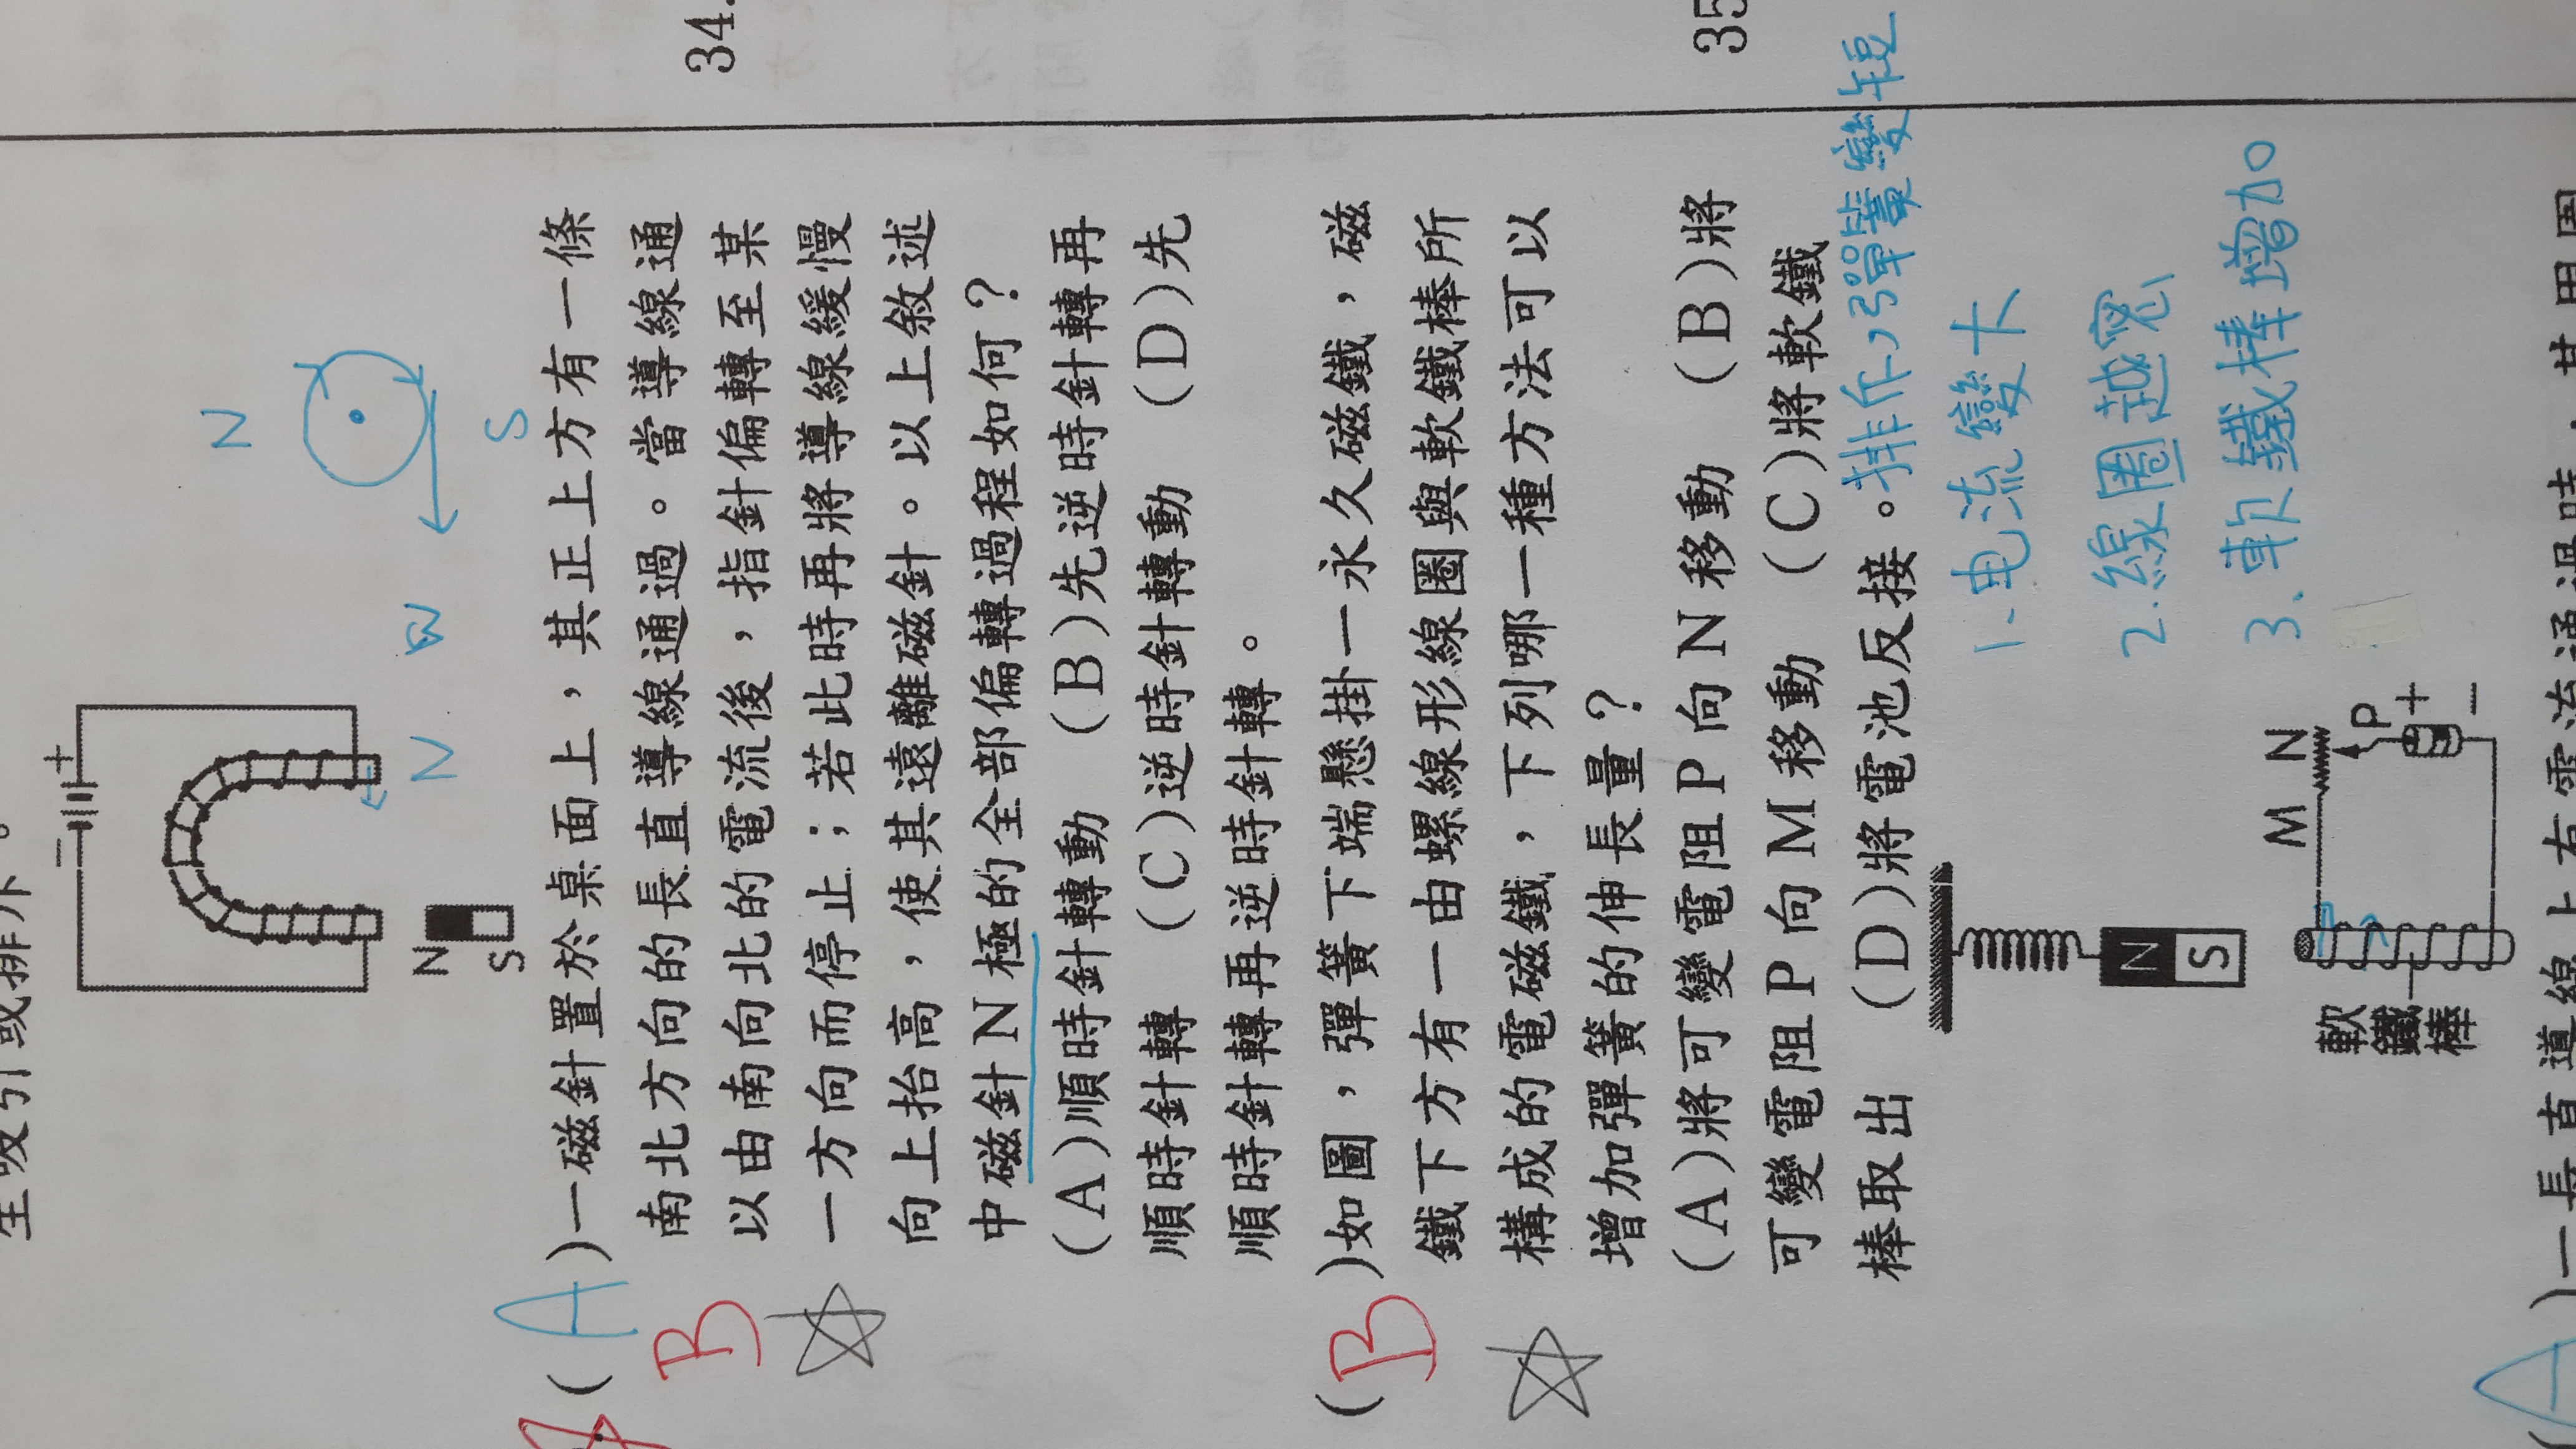 生吸引或排斥。
－ +
N
S
N
N
S
N
W
(A)一磁針置於桌面上，其正上方有一條
B
南北方向的長直導線通過。當導線通
以由南向北的電流後，指針偏轉至某
一方向而停止；若此時再將導線緩慢
向上抬高，使其遠離磁針。以上敘述
中磁針N極的全部偏轉過程如何？
(A)順時針轉動　(B)先逆時針轉再
順時針轉　(C)逆時針轉動　(D)先
順時針轉再逆時針轉。
(B)如圖，彈簧下端懸掛一永久磁鐵，磁
鐵下方有一由螺線形線圈與軟鐵棒所
構成的電磁鐵，下列哪一種方法可以
增加彈簧的伸長量？
(A)將可變電阻P向N移動　(B)將
可變電阻P向M移動　(C)將軟鐵
棒取出　(D)將電池反接。
排斥,彈簧變短
1.电流變大
2.線圈越密
3.軟鐵棒增加
N
S
軟
鐵
棒
M N
P
+
－
(A)一長直導線上有電流通過時，其周圍
34.
35